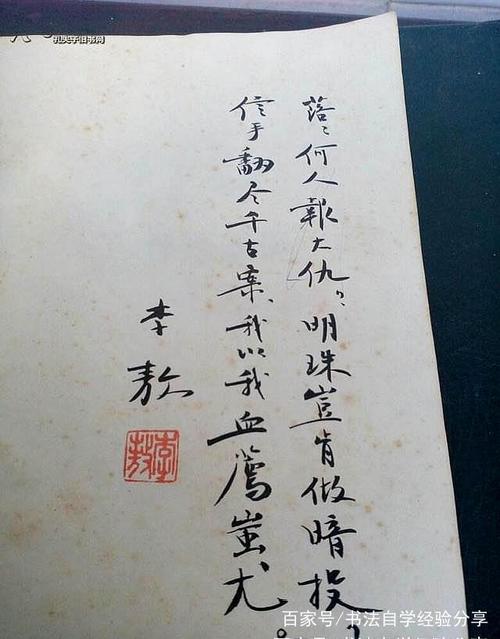 落、何人報大仇？明珠豈肯做暗投，
信手翻尽千古案、我以我血薦蚩尤。
李敖
李敖
孔夫子旧书网
百家号/书法自学经验分享